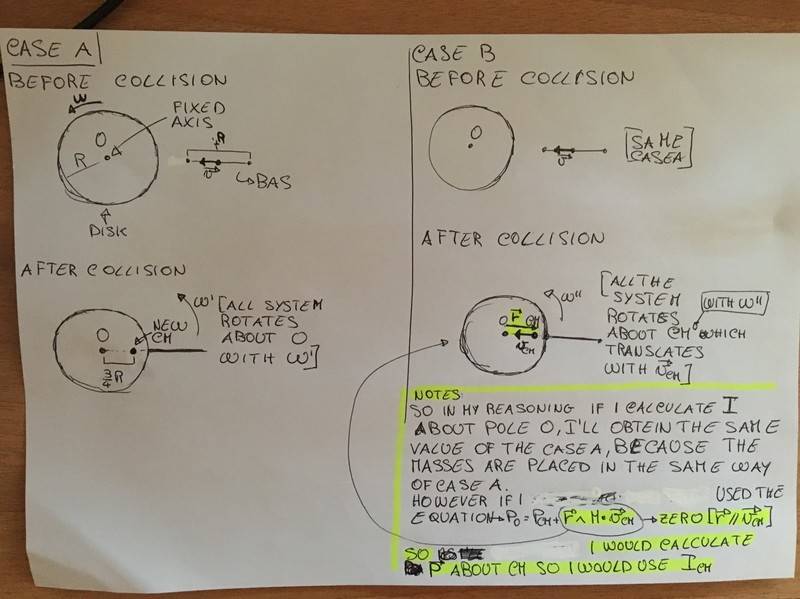 CASE A
BEFORE COLLISION
ω
FIXED
AXIS
O
R
R
v
BAS
DISK
AFTER COLLISION
O
NEW
CM
3/4 R
ω'
[ALL SYSTEM
ROTATES
ABOUT O
WITH ω']
CASE B
BEFORE COLLISION
O
v
[SAME
CASE A]
AFTER COLLISION
O
r
CM
v_CM
ω"
[ALL THE
SYSTEM
ROTATES
WITH ω"
ABOUT CM WHICH
TRANSLATES
WITH v_CM]
NOTES
SO IN MY REASONING IF I CALCULATE I
ABOUT POLE O, I'LL OBTEIN THE SAME
VALUE OF THE CASE A, BECAUSE THE
MASSES ARE PLACED IN THE SAME WAY
OF CASE A.
HOWEVER IF I USED THE
EQUATION→P_O = P_CM + r ∧ M·v_CM → ZERO [r // v_CM]
SO I WOULD CALCULATE
P ABOUT CM SO I WOULD USE I_CM